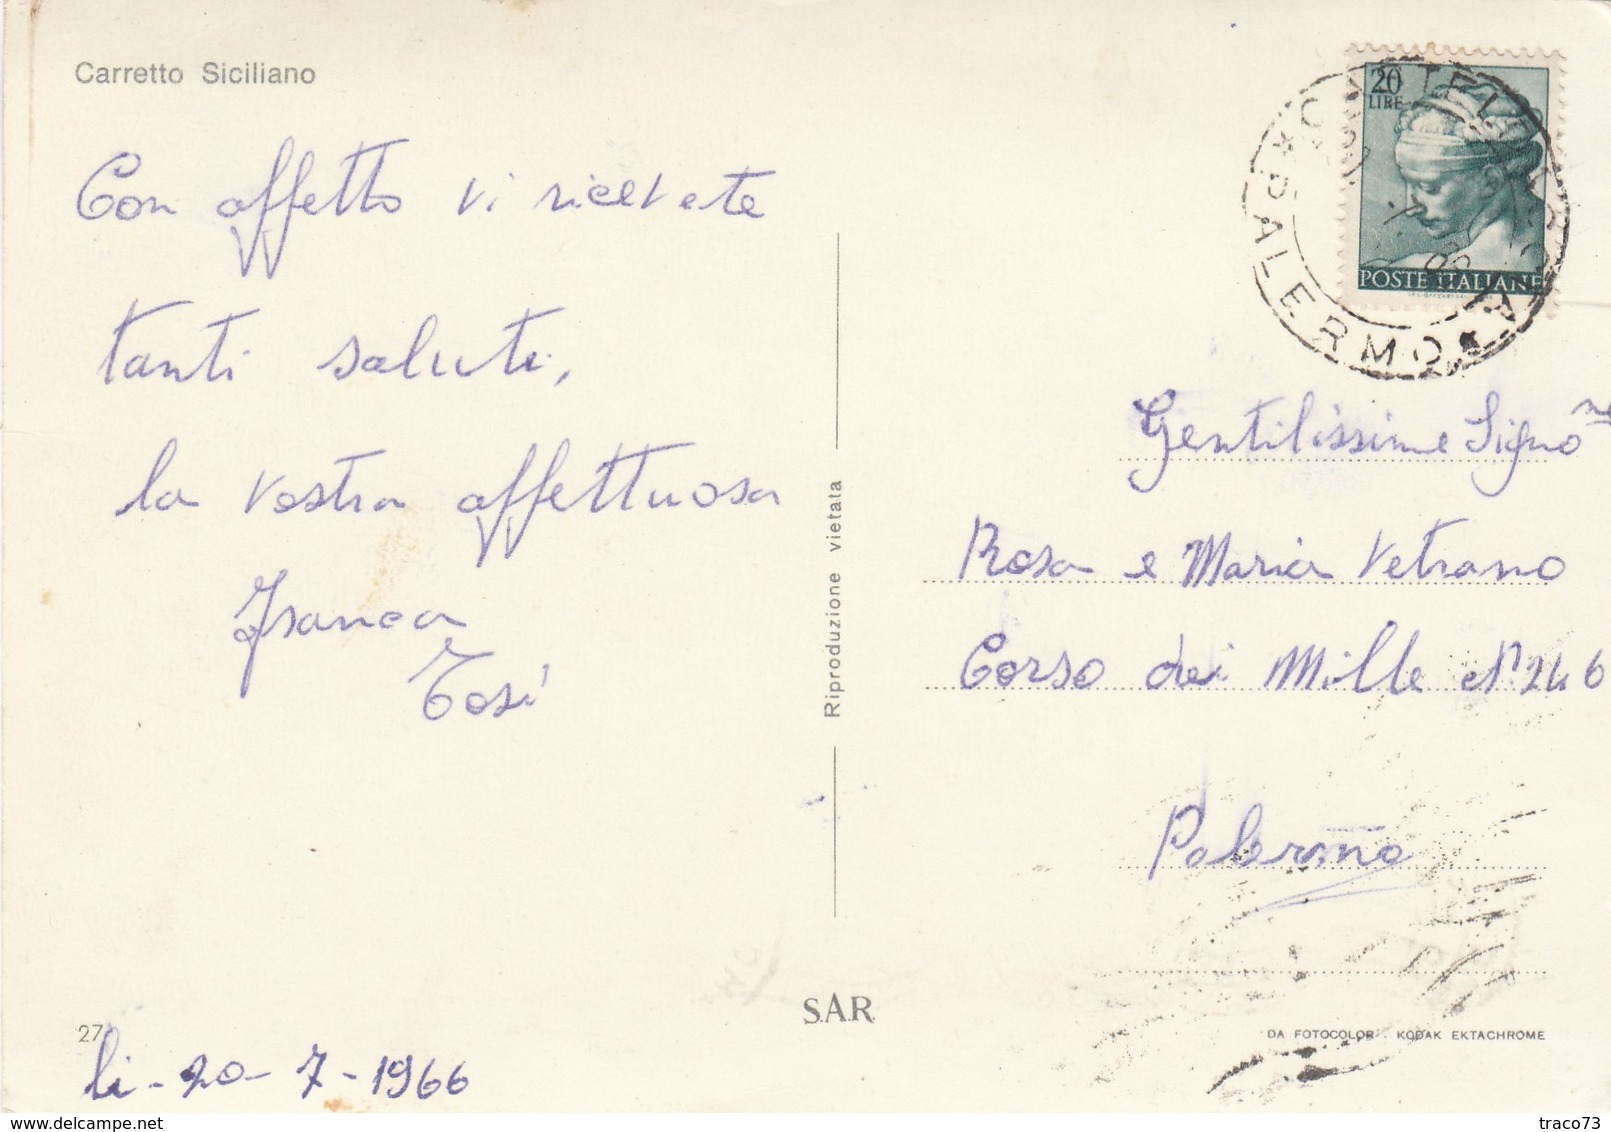 Carretto Siciliano
Con affetto vi ricevete
tanti saluti,
la vostra affettuosa
Franca
Tosi
27
li - 20 - 7 - 1966
Riproduzione vietata
S.A.R.
20
LIRE
POSTE ITALIANE
PALERMO
Gentilissime Signo ne
Rosa e Maria Vetrano
Corso dei Mille N° 246
Palermo
DA FOTOCOLOR KODAK EKTACHROME
traco73